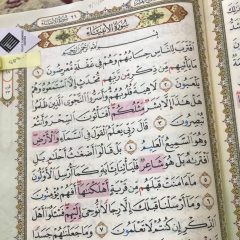 سُورَةُ الأَنبِيَاءِ
بِسْمِ اللَّهِ الرَّحْمَٰنِ الرَّحِيمِ
اقْتَرَبَ لِلنَّاسِ حِسَابُهُمْ وَهُمْ فِي غَفْلَةٍ مُّعْرِضُونَ ١
مَا يَأْتِيهِم مِّن ذِكْرٍ مِّن رَّبِّهِم مُّحْدَثٍ إِلَّا اسْتَمَعُوهُ وَهُمْ
يَلْعَبُونَ ٢ لَاهِيَةً قُلُوبُهُمْ وَأَسَرُّوا النَّجْوَى الَّذِينَ ظَلَمُوا
هَلْ هَٰذَا إِلَّا بَشَرٌ مِّثْلُكُمْ أَفَتَأْتُونَ السِّحْرَ وَأَنتُمْ
تُبْصِرُونَ ٣ قَالَ رَبِّي يَعْلَمُ الْقَوْلَ فِي السَّمَاءِ وَالْأَرْضِ
وَهُوَ السَّمِيعُ الْعَلِيمُ ٤ بَلْ قَالُوا أَضْغَاثُ أَحْلَامٍ بَلِ
افْتَرَاهُ بَلْ هُوَ شَاعِرٌ فَلْيَأْتِنَا بِآيَةٍ كَمَا أُرْسِلَ الْأَوَّلُونَ ٥
مَا آمَنَتْ قَبْلَهُم مِّن قَرْيَةٍ أَهْلَكْنَاهَا أَفَهُمْ يُؤْمِنُونَ ٦
وَمَا أَرْسَلْنَا قَبْلَكَ إِلَّا رِجَالًا نُّوحِي إِلَيْهِمْ فَاسْأَلُوا أَهْلَ
الذِّكْرِ إِن كُنتُمْ لَا تَعْلَمُونَ ٧ وَمَا جَعَلْنَاهُمْ جَسَدًا